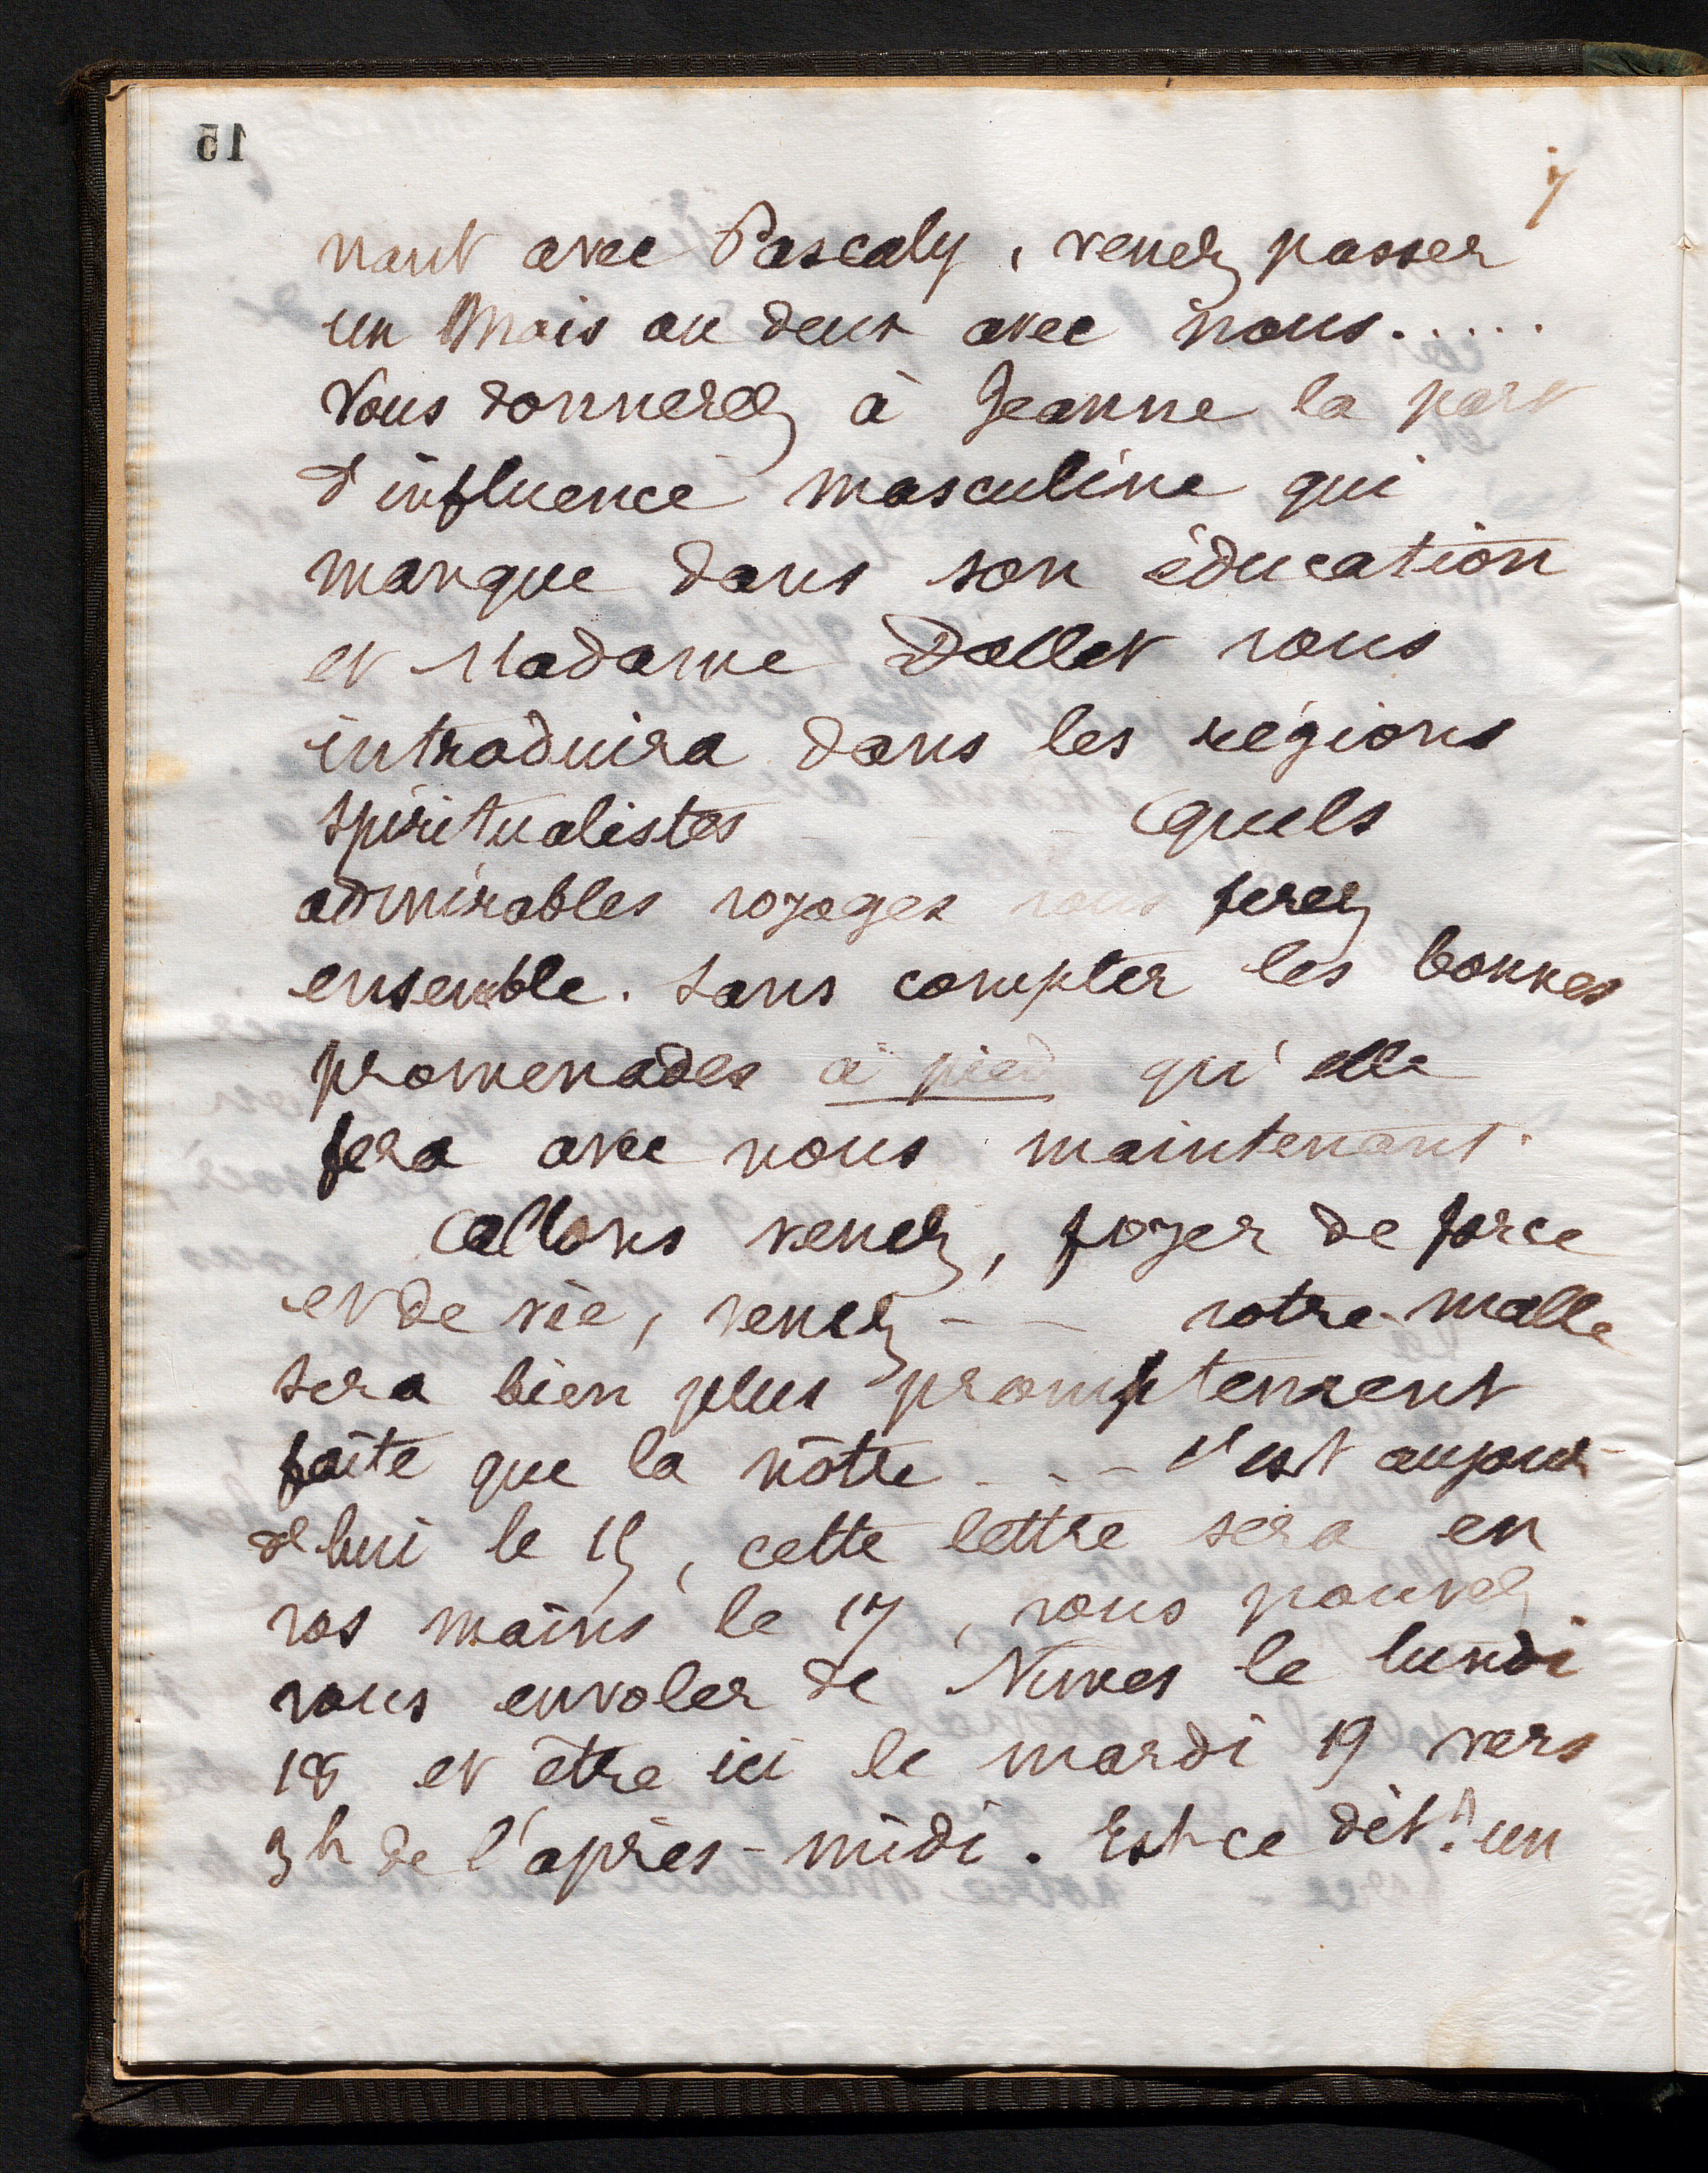 7
nant avec Pascaly, venez passer
un Mois ou deux avec nous.....
Vous donnerez à Jeanne la part
d'influence masculine qui
manque dans son éducation
et Madame Dallet vous
introduira dans les régions
spiritualistes - - - Quels
admirables voyages vous ferez
ensemble. Sans compter les bonnes
promenades à pied qu'elle
fera avec nous maintenant.
Allons venez, foyer de force
et de vie, venez - - votre malle
sera bien plus promptement
faite que la nôtre - - - C'est aujour-
d'hui le 15, cette lettre sera en
vos mains le 17, vous pouvez
vous envoler de Nimes le lundi
18 et être ici le mardi 19 vers
3h de l'après-midi. Est-ce dit? un
15